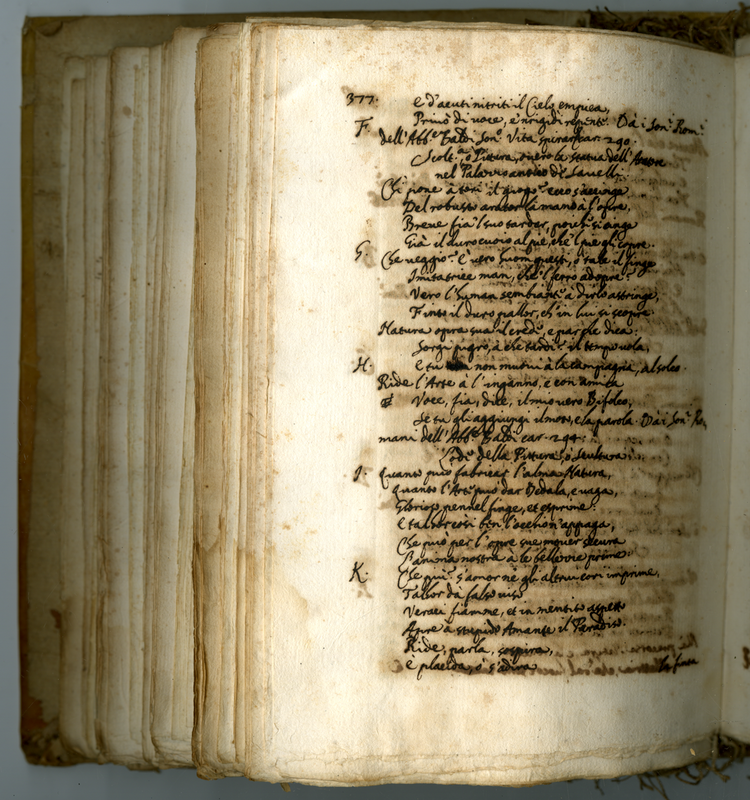 377. e d'acuti nitriti il Cielo empiea,
Privo di voce, e'n rigidi repente. Da i Son.i Rom.i
F. dell'Abb.e Baldi Son.o Vita spirar car. 290.
Scolt.a, o Pittura, overo la statua dell'
nel Palazzo antico de Savelli.
Chi pone a tori il giogo? ecco s'accinge
Del robusto arator la mano à l'opre,
Breve fia'l suo tardar, poiche si ange
Già il duro cuoio al piè, che'l piè gli copre.
G. Che veggio? è vero huom questi, o tale il finge
Imitatrice man, che'l ferro adopre?
Vero l'human sembiante a dirlo astringe,
Finto il duro pallor, ch'in lui si scopre.
Natura opra sua il crede, e par che dica:
Sorgi pigro, a che tardi? il tempo vola,
H. e tu non muovi à la campagna, al sole.
Ride l'Arte à l'inganno, e con amica
Voce, fia, dice, il mio vero Bifolco,
Se tu gli aggiungi il moto, e la parola. Da i Son.i Ro-
mani dell'Abb.e Baldi car. 294.
Lodi della Pittura, o Scultura.
I. Quanto può fabricar l'alma Natura,
Quanto l'Arte può dar Dedala, e vaga,
Glorioso pennel finge, et esprime.
E talhor così ben l'occhio n'appaga,
Che può per l'opre sue
L'anima nostra à le bellezze prime.
K. Che più? s'amor ne gli altrui cori imprime,
Tallor da falso viso
Veraci fiamme, et in mentito aspetto
Apre à stupido Amante il Paradiso.
Ride, parla, sospira,
è placida, o s'adira
la finta